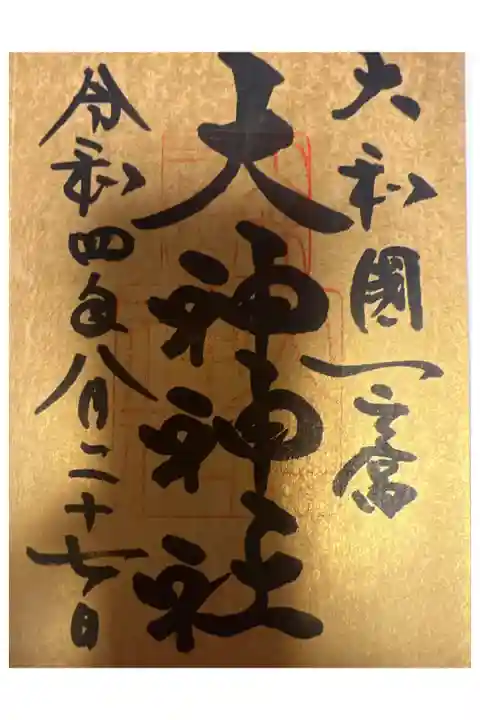 大和國一之宮
大神神社
令和四年八月二十七日